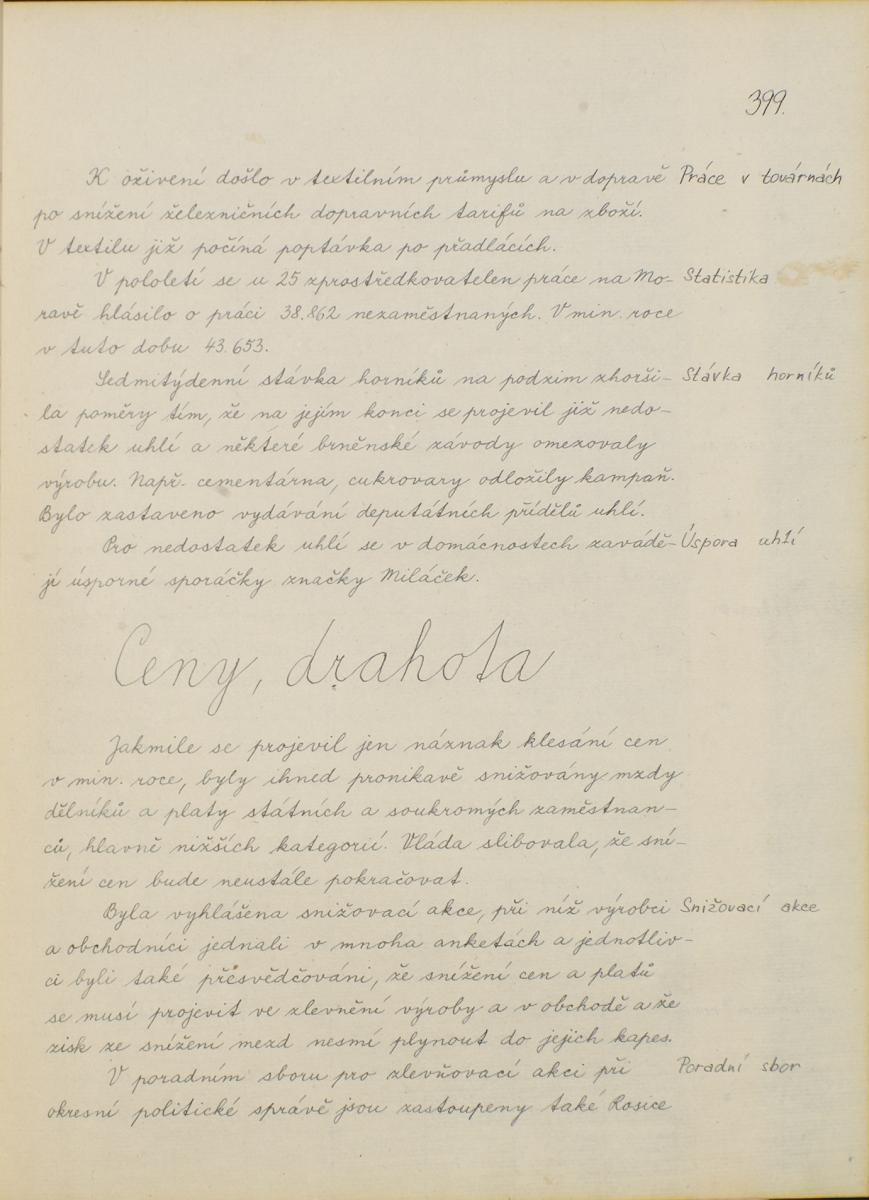 399.
K oživení došlo v textilním průmyslu a v dopravě Práce v továrnách
po snížení železničních dopravních tarifů na zboží.
V textilu již počíná poptávka po přadlácích.
V pololetí se u 25 zprostředkovatelen práce na Mo- Statistika
ravě hlásilo o práci 38.862 nezaměstnaných. V min. roce
v tuto dobu 43.653.
Sedmitýdenní stávka horníků na podzim zhorši- Stávka horníků
la poměry tím, že na jejím konci se projevil již nedo-
statek uhlí a některé brněnské závody omezovaly
výrobu. Např. cementárna, cukrovary odložily kampaň.
Bylo zastaveno vydávání deputátních přídělů uhlí.
Pro nedostatek uhlí se v domácnostech zavádě- Úspora uhlí
jí úsporné sporáčky značky Miláček.
Ceny, drahota
Jakmile se projevil jen náznak klesání cen
v min. roce, byly ihned pronikavě snižovány mzdy
dělníků a platy státních a soukromých zaměstnan-
ců, hlavně nižších kategorií. Vláda slibovala, že sní-
žení cen bude neustále pokračovat.
Byla vyhlášena snižovací akce, při níž výrobci Snižovací akce
a obchodníci jednali v mnoha anketách a jednotliv-
ci byli také přesvědčováni, že snížení cen a platů
se musí projevit ve zlevnění výroby a v obchodě a že
zisk ze snížení mezd nesmí plynout do jejich kapes.
V poradním sboru pro zlevňovací akci při Poradní sbor
okresní politické správě jsou zastoupeny také Rosice